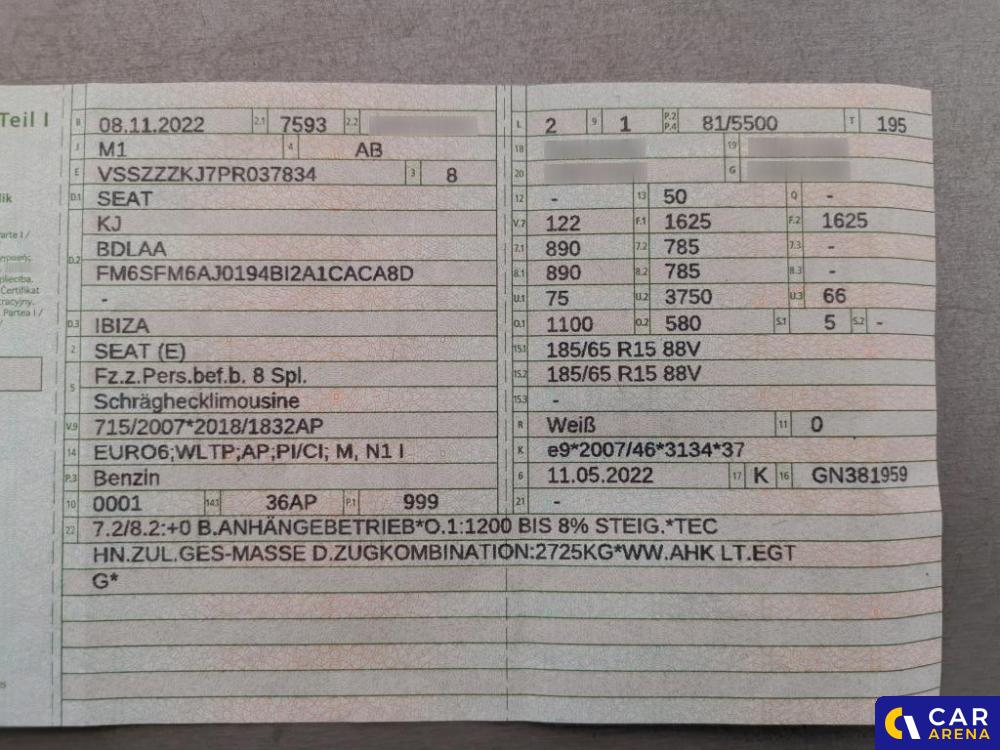 Teil I
B 08.11.2022 2.1 7593 2.2 L 2 9 1 P.2 P.4 81/5500 T 195
J M1 4 AB 18 19
E VSSZZZKJ7PR037834 3 8 20 G
D.1 SEAT 12 - 13 50 Q -
KJ V.7 122 F.1 1625 F.2 1625
D.2 BDLAA 7.1 890 7.2 785 7.3 -
FM6SFM6AJ0194BI2A1CACA8D 8.1 890 8.2 785 8.3 -
- U.1 75 U.2 3750 U.3 66
D.3 IBIZA O.1 1100 O.2 580 S.1 5 S.2 -
2 SEAT (E) 15.1 185/65 R15 88V
5 Fz.z.Pers.bef.b. 8 Spl. 15.2 185/65 R15 88V
Schräghecklimousine 15.3 -
V.9 715/2007*2018/1832AP R Weiß 11 0
14 EURO6;WLTP;AP;PI/CI; M, N1 I K e9*2007/46*3134*37
P.3 Benzin 6 11.05.2022 17 K 16 GN381959
10 0001 14.1 36AP P.1 999 21 -
22 7.2/8.2:+0 B.ANHÄNGEBETRIEB*O.1:1200 BIS 8% STEIG.*TEC
HN.ZUL.GES-MASSE D.ZUGKOMBINATION:2725KG*WW.AHK LT.EGT
G*
lik
arte I /
pliecība.
Certifikat
tracyjny.
Partea I /
CAR
ARENA